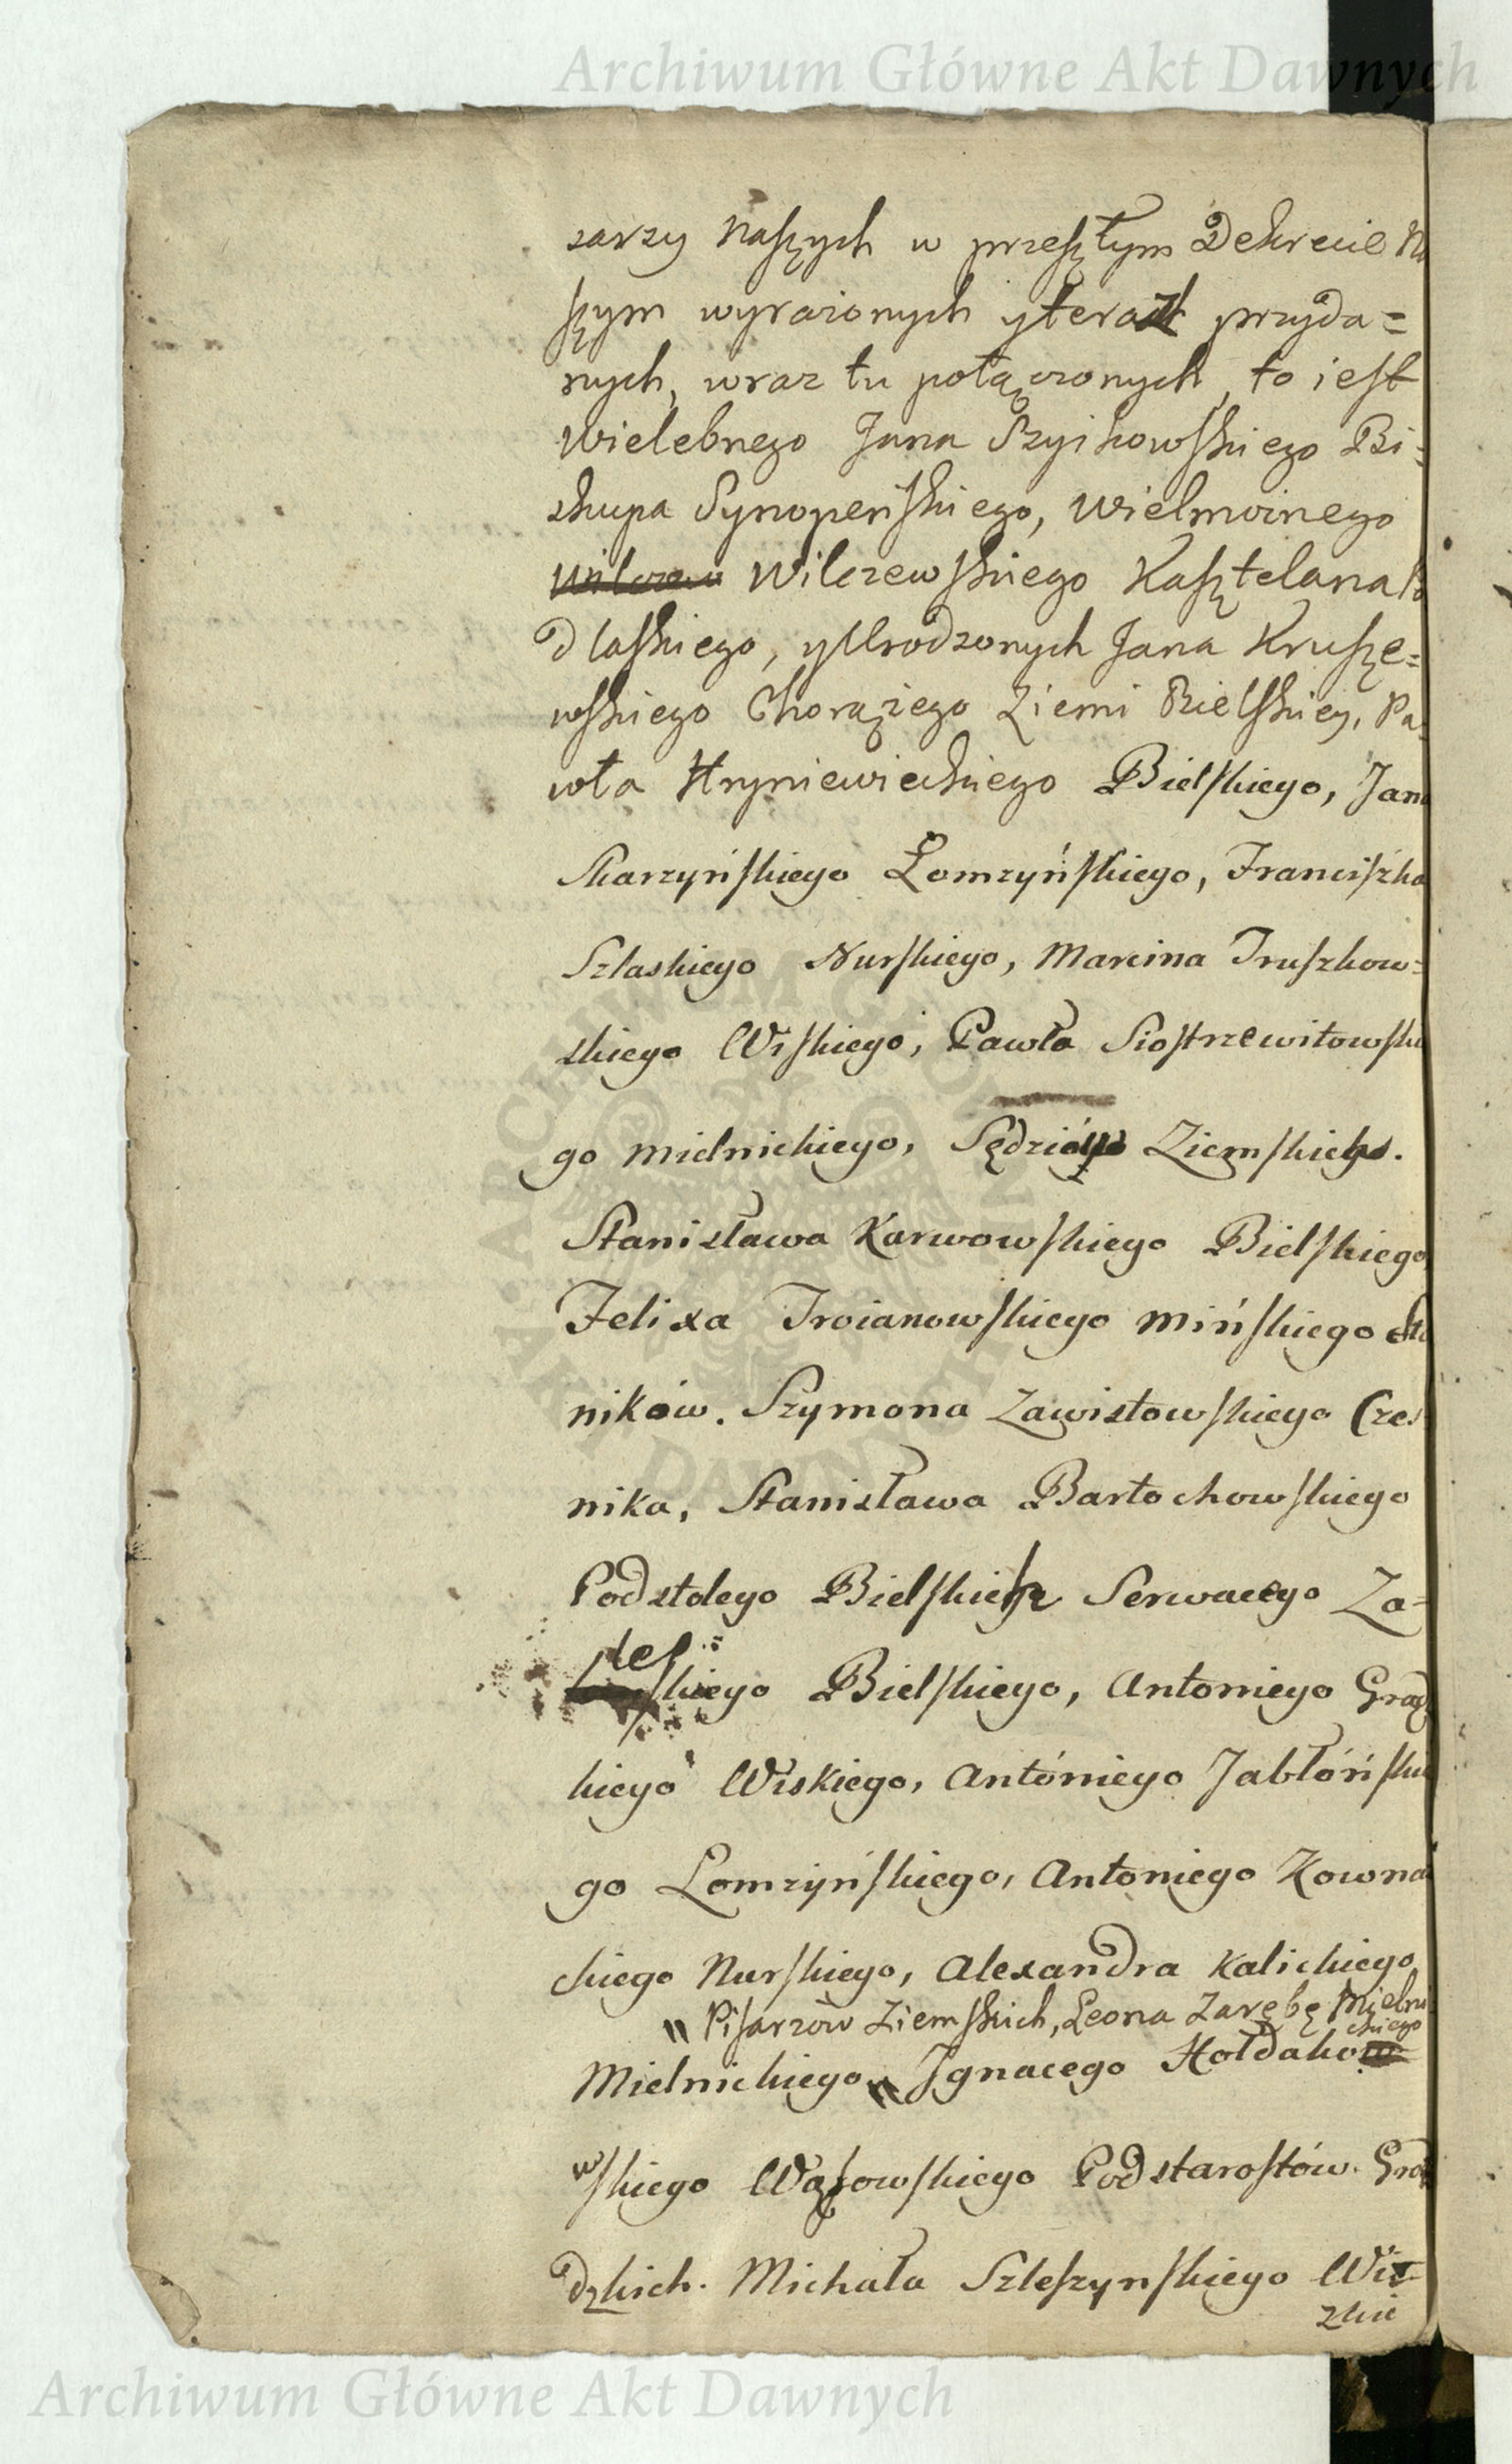 Archiwum Główne Akt Dawnych
sarzy naszych w przeszłym Dekrecie Na
szym wyrażonych y teraz przyda=
nych, wraz tu połączonych, to iest
Wielebnego Jana Szyikowskiego Bi=
skupa Synopeńskiego, Wielmożnego
Wilczewskiego Kasztelana Po
dlaskiego, y Urodzonych Jana Krusze=
wskiego Chorążego Ziemi Bielskiey, Pa=
wła Hryniewieckiego Bielskiego, Jana
Skarzyńskiego Łomzyńskiego, Franciszka
Szlaskiego Nurskiego, Marcina Truszkow=
skiego Wiskiego, Pawła Siostrzewitowskie
go Mielnickiego, Sędziów Ziemskich.
Stanisława Karwowskiego Bielskiego
Felixa Troianowskiego Mińskiego Sto
ników. Szymona Zawistowskiego Czes
nika, Stanisława Bartochowskiego
Podstolego Bielskich Serwacego Za=
leskiego Bielskiego, Antoniego
kiego Wiskiego, Antoniego Jabłońskie
go Łomzyńskiego, Antoniego Kowna
ckiego Nurskiego, Alexandra Kalickiego
" Pisarzów Ziemskich, Leona Zarębę Mielni
ckiego
Mielnickiego " Ignacego Hołdako
wskiego Wąsowskiego Podstarostów. Gro
dzkich. Michała Szleszynskiego
zkie
ARCHIWUM GŁÓWNE AKT DAWNYCH
Archiwum Główne Akt Dawnych